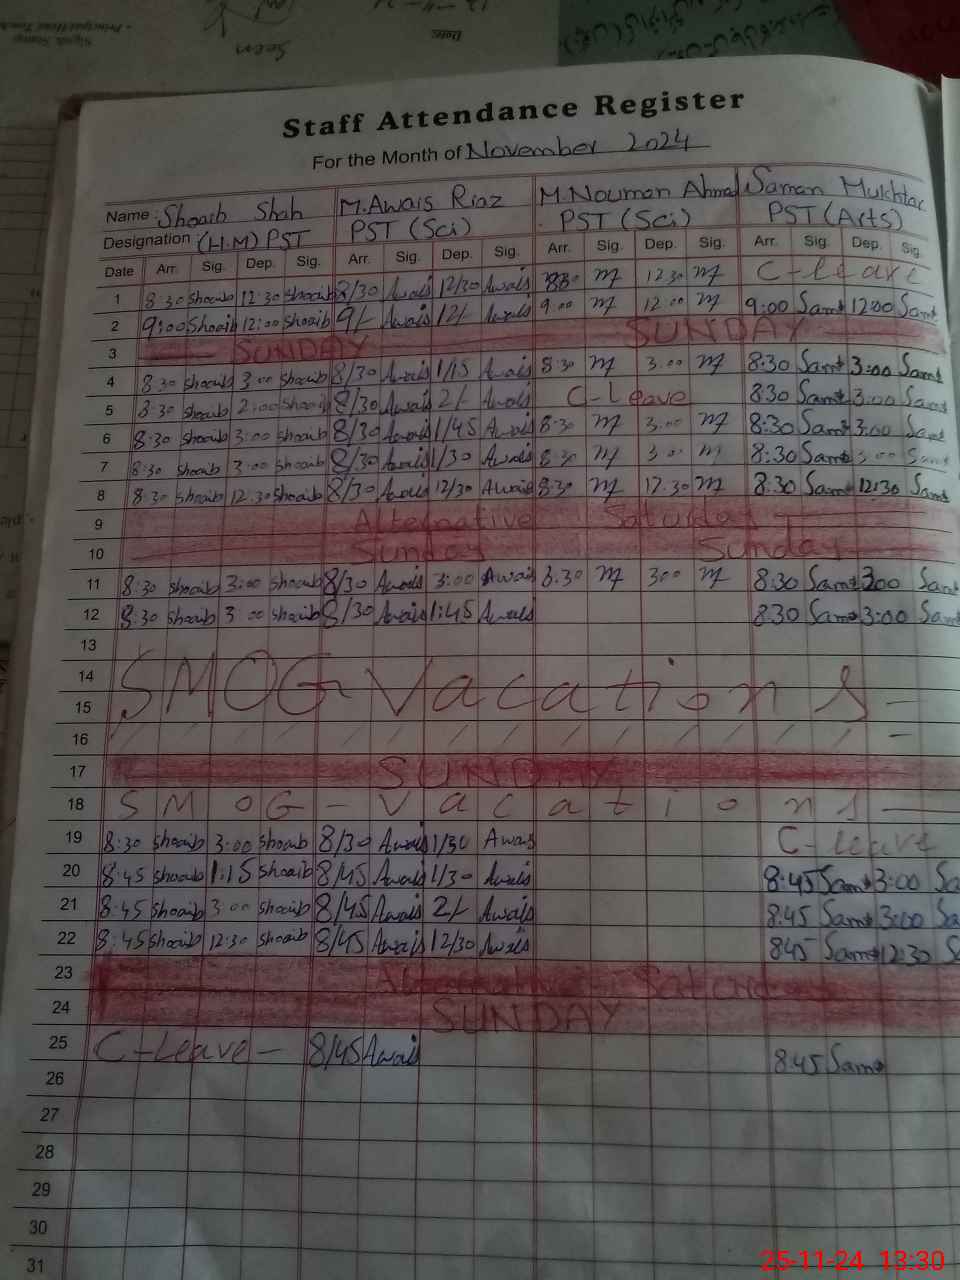 Seen
Date:
Staff Attendance Register
For the Month of November 2024
Name: Shoaib Shah M. Awais Riaz M. Nouman Ahmad Saman Mukhtar
Designation (H.M) PST PST (Sci) PST (Sci) PST (Arts)
Date Arr. Sig. Dep. Sig. Arr. Sig. Dep. Sig. Arr. Sig. Dep. Sig. Arr. Sig. Dep. Sig.
1 8:30 Shoaib 12:30 Shoaib 8/30 Awais 12/30 Awais 830 M 12 30 M C-leave
2 9:00 Shoaib 12:00 Shoaib 9/- Awais 12/- Awais 9.00 M 12.00 M 9:00 Sam 12:00 Sam
3 SUNDAY SUNDAY
4 8:30 Shoaib 3:00 Shoaib 8/30 Awais 1/15 Awais 8:30 M 3.00 M 8:30 Sam 3:00 Sam
5 8:30 Shoaib 2:00 Shoaib 8/30 Awais 2/- Awais C-Leave 8:30 Sam 3:00 Sam
6 8:30 Shoaib 3:00 Shoaib 8/30 Awais 1/45 Awais 8:30 M 3.00 M 8:30 Sam 3:00 Sam
7 8:30 Shoaib 3:00 Shoaib 8/30 Awais 1/30 Awais 8:30 M 3.00 M 8:30 Sam 3:00 Sam
8 8:30 Shoaib 12.30 Shoaib 8/30 Awais 12/30 Awais 8:30 M 12.30 M 8:30 Sam 12:30 Sam
9 Alternative Saturday
10 Sunday Sunday
11 8:30 Shoaib 3:00 Shoaib 8/30 Awais 3:00 Awais 8.30 M 300 M 8:30 Sam 300 Sam
12 8:30 Shoaib 3:00 Shoaib 8/30 Awais 1:45 Awais 8:30 Sam 3:00 Sam
13
14 SMOG Vacations -
15
16
17 SUNDAY
18 SMOG - Vacations -
19 8:30 Shoaib 3:00 Shoaib 8/30 Awais 1/30 Awais C-leave
20 8:45 Shoaib 1:15 Shoaib 8/45 Awais 1/30 Awais 8:45 Sam 3:00 Sa
21 8:45 Shoaib 3:00 Shoaib 8/45 Awais 2/- Awais 8:45 Sam 3:00 Sa
22 8:45 Shoaib 12:30 Shoaib 8/45 Awais 12/30 Awais 845 Sam 12:30 Sa
23 Alternative Saturday
24 SUNDAY
25 C-Leave - 8/45 Awais 8:45 Sam
26
27
28
29
30
31
25-11-24 13:30